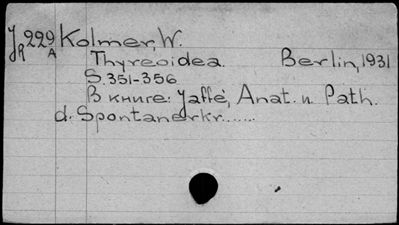 JR 229 Kolmer, W.
A Thyreoidea. Berlin, 1931
S. 351-356
В книге: Jaffé, Anat. u. Path.
d. Spontanerkr......